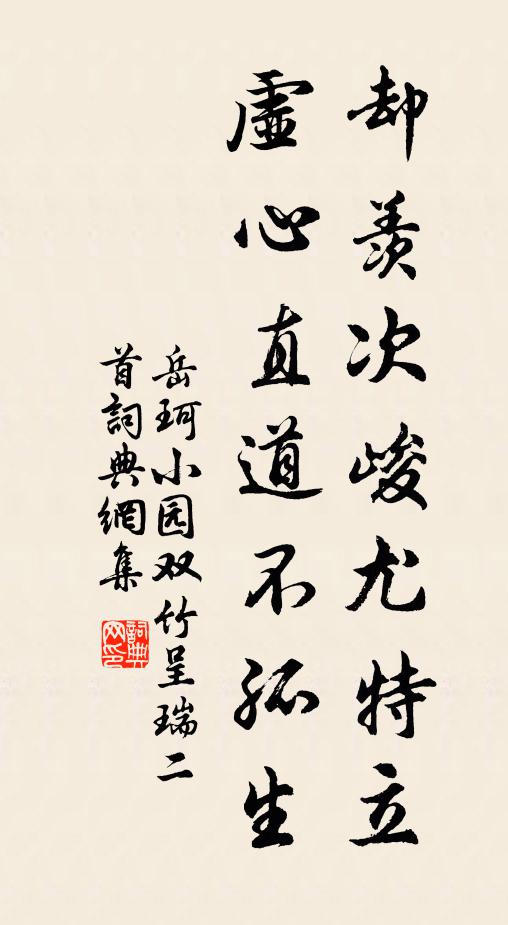 却羨次峻尤特立
虛心直道不孤生
岳珂小园双竹呈瑞二
首詞典網集
詞典网印